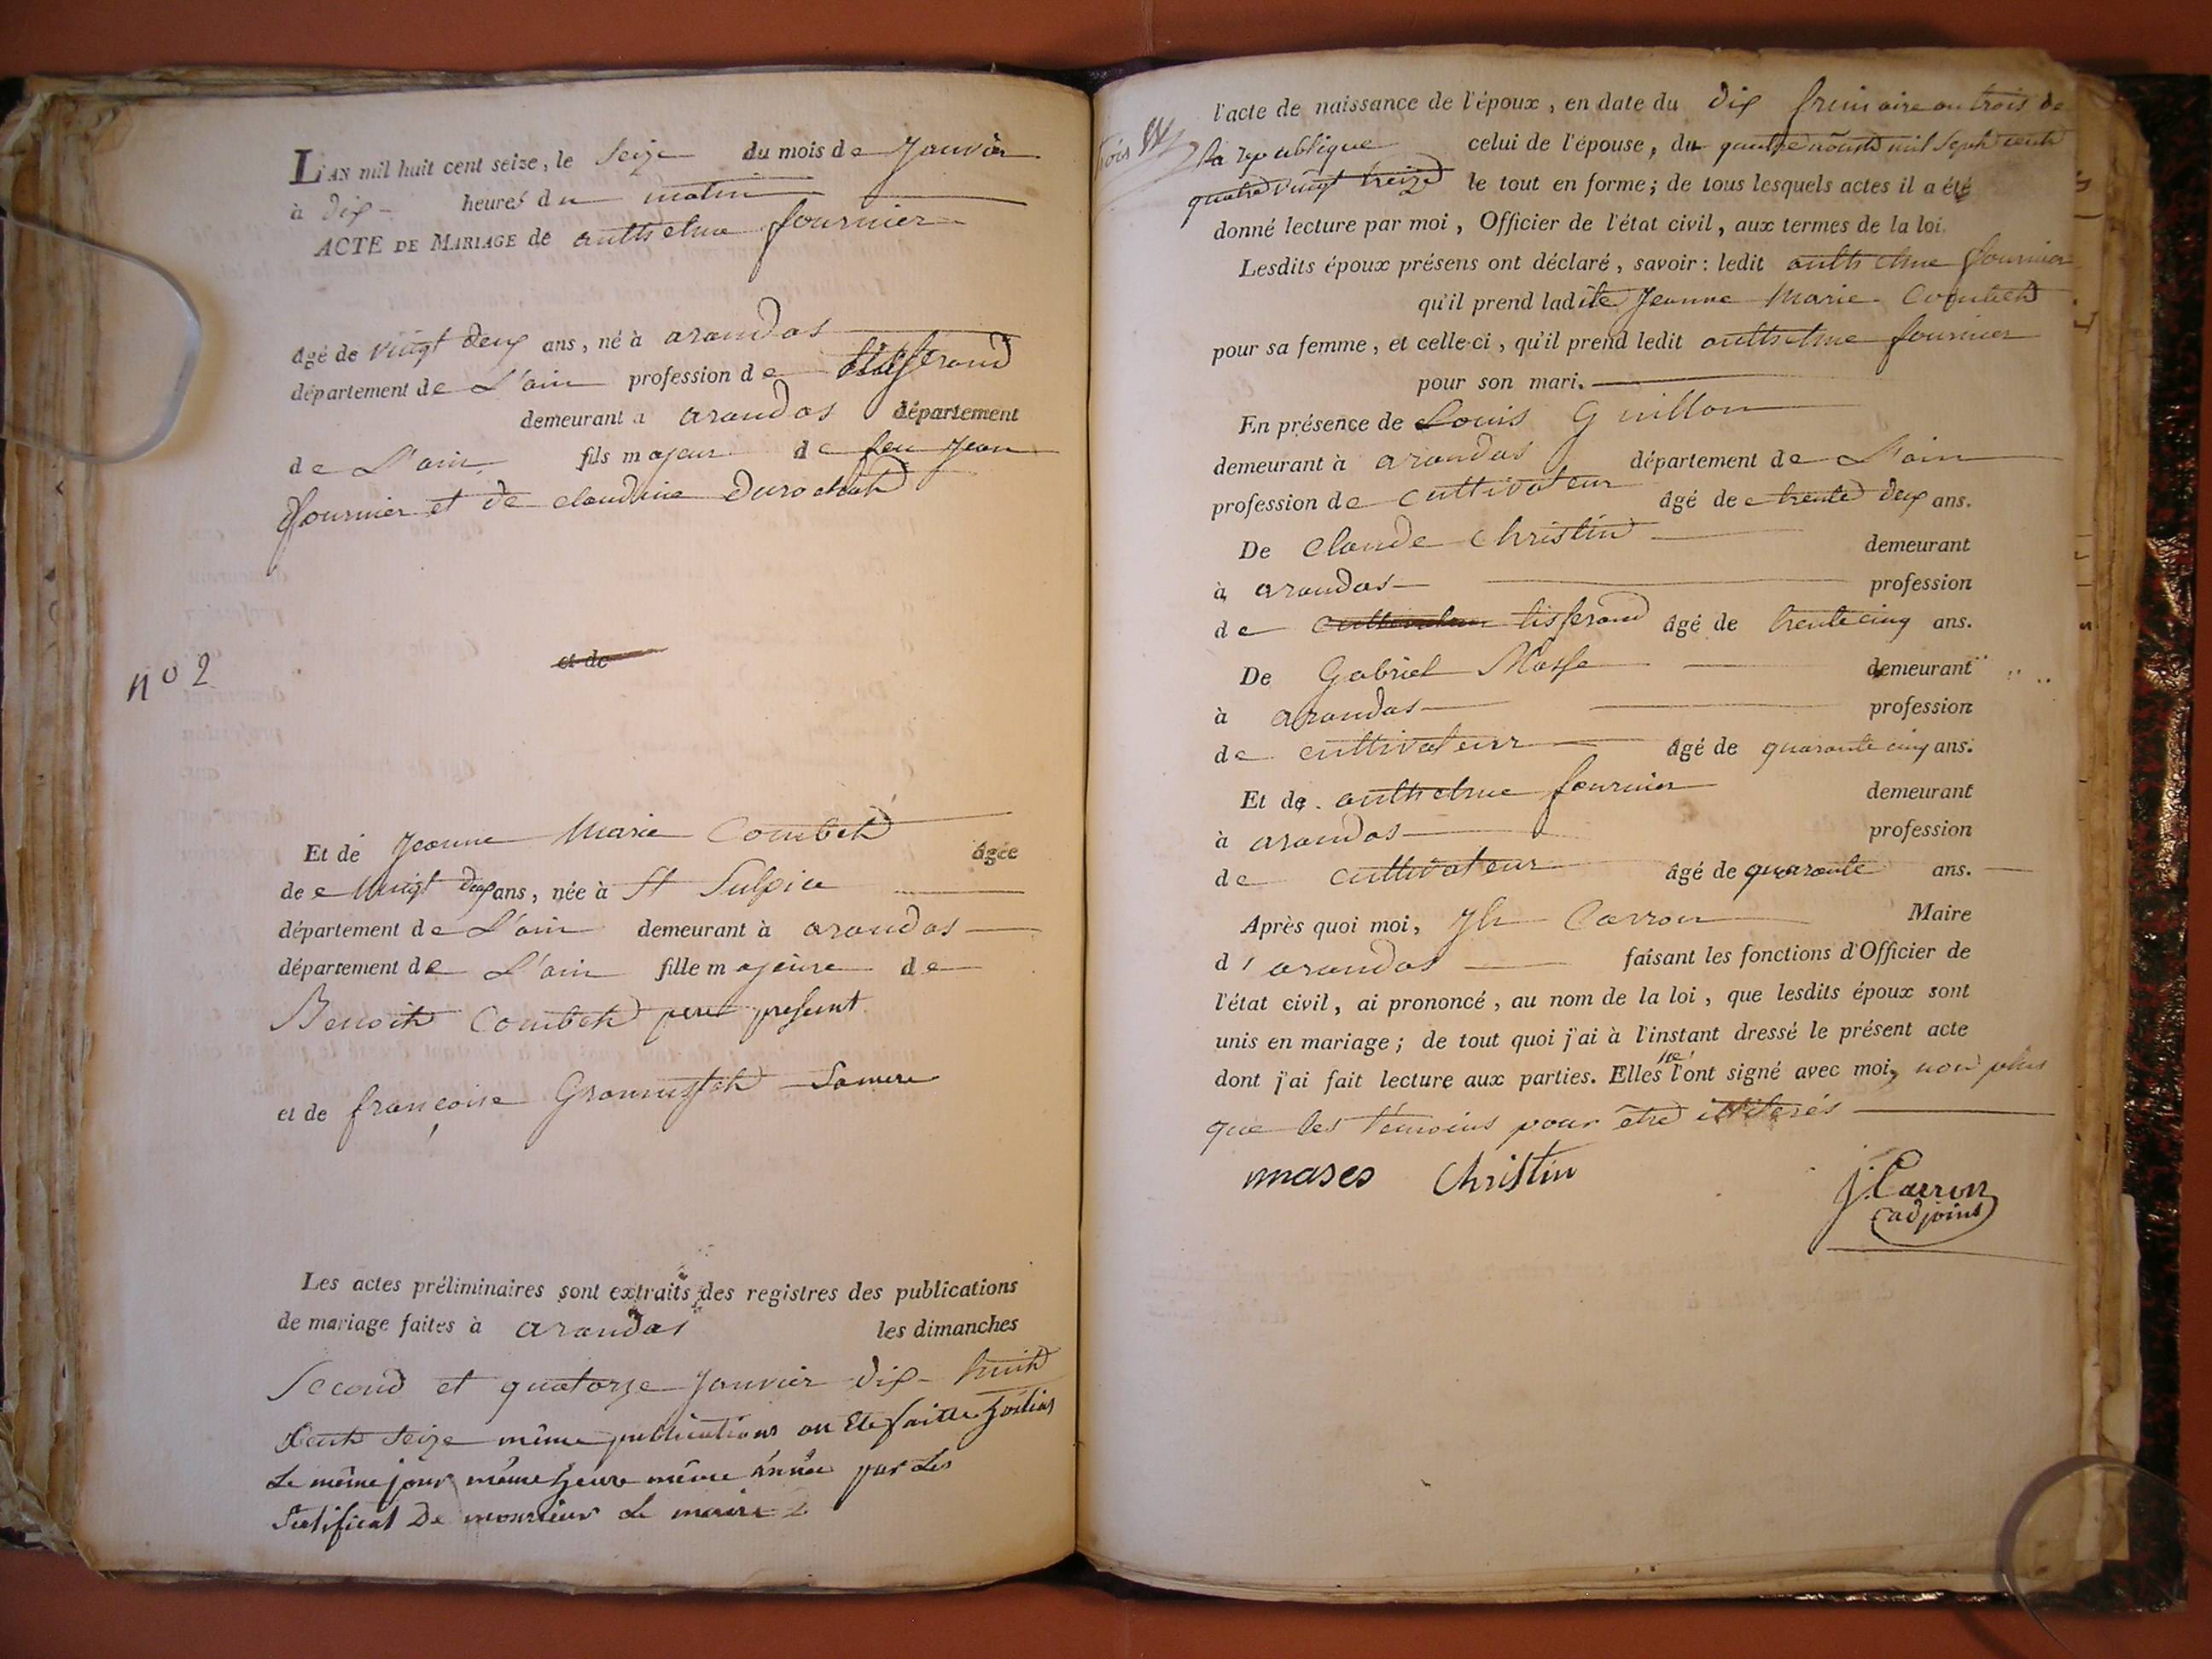 L'AN mil huit cent seize, le Seize du mois de Janvier
à dix heures du matin
ACTE DE MARIAGE de anthelme fournier
âgé de vingt deux ans, né à arandas
département de L'ain profession de tisserand
demeurant a arandas département
de L'ain fils majeur de feu Jean
fournier et de claudine Durochat
nº 2
et de
Et de Jeanne Marie Combet âgée
de vingt deux ans, née à St Sulpice
département de L'ain demeurant à arandas
département de L'ain fille majeure de
Benoit Combet pere present
et de françoise Sa mere
Les actes préliminaires sont extraits des registres des publications
de mariage faites à arandas les dimanches
Second et quatorze Janvier dix huit
Cent Seize même publications on Ete faitte
Le même jour même heure même année par Les
Sertificat De monsieur Le maire
l'acte de naissance de l'époux, en date du dix frimaire an trois de
la republique celui de l'épouse, du quatre août mil Sept cent
quatre vingt treize le tout en forme; de tous lesquels actes il a été
donné lecture par moi, Officier de l'état civil, aux termes de la loi.
Lesdits époux présens ont déclaré, savoir: ledit anthelme fournier
qu'il prend ladite Jeanne Marie Combet
pour sa femme, et celle-ci, qu'il prend ledit anthelme fournier
pour son mari.
En présence de Louis Guillon
demeurant à arandas département de L'ain
profession de cultivateur âgé de trente deux ans.
De Claude Christin demeurant
à arandas profession
de cultivateur tisserand âgé de trente cinq ans.
De Gabriel Masse demeurant
à arandas profession
de cultivateur âgé de quarante cinq ans.
Et de anthelme fournier demeurant
à arandas profession
de cultivateur âgé de quarante ans.
Après quoi moi, Jh Carron Maire
d'arandas faisant les fonctions d'Officier de
l'état civil, ai prononcé, au nom de la loi, que lesdits époux sont
unis en mariage; de tout quoi j'ai à l'instant dressé le présent acte
dont j'ai fait lecture aux parties. Elles ne l'ont signé avec moi, non plus
que les témoins pour être illiterés
mases Christin
J. Carron
adjoint